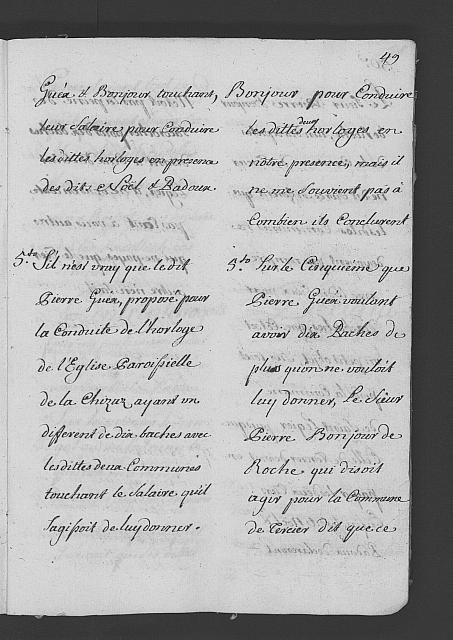 49
Guex & Bonjour touchant,
leur salaire pour Conduire
lesdittes horloges en presence
des dits e Noël & Padoux
5.to S'il n'est vray que le dit
Pierre Guex, proposé pour
la Conduite de l'horloge
de l'Eglise Paroissielle
de la Chizuz, ayant vn
different de dix baches avec
lesdittes deux Communes
touchant le Salaire qu'il
s'agissoit de luy donner.
Bonjour pour Conduire
les dittes deux horloges en
nôtre presence, mais il
ne me souvient pas à
Combien ils Conclurent
5.to Sur le Cinquieme que
Pierre Guex voulant
avoir dix Baches de
plus qu'on ne vouloit
luy donner, Le Sieur
Pierre Bonjour de
Roche qui disoit
agir pour la Commune
de Cercier dit que ce